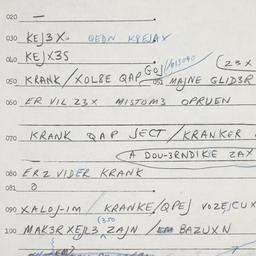 020 —
030 KEJ3X. QEDN KREJAX
040 KEJX3S
050 KRANK / XOL8E QAP GOJ 051 MAJNE GLID3R
(Z3X
060 ER VIL Z3X MISTOM3 OPRUEN
070 KRANK QAP JECT / KRANKER
A DOU-3RNDIKIE ZAX
080 ER Z VIDER KRANK
081 8
090 XALOJ-IM / KRANKE / QPEJ VOZEJCUX
100 MAK3R XEJL3 ZAJN / BAZUXN